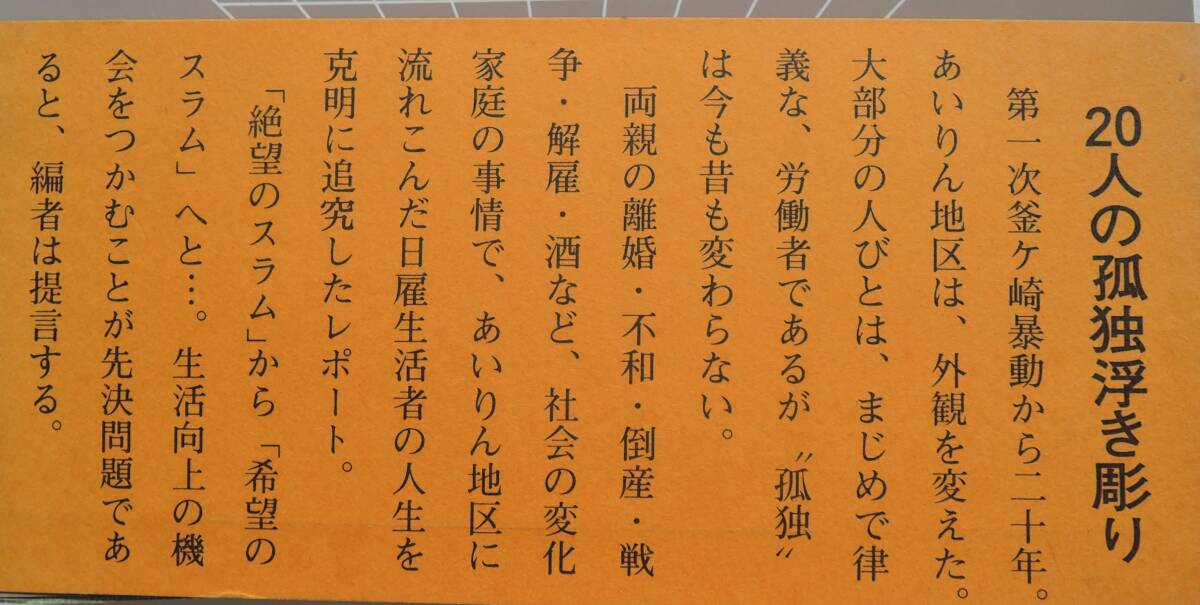 20人の孤独浮き彫り
第一次釜ケ崎暴動から二十年。
あいりん地区は、外観を変えた。
大部分の人びとは、まじめで律
義な、労働者であるが〝孤独〟
は今も昔も変わらない。
両親の離婚・不和・倒産・戦
争・解雇・酒など、社会の変化
家庭の事情で、あいりん地区に
流れこんだ日雇生活者の人生を
克明に追究したレポート。
「絶望のスラム」から「希望の
スラム」へと…。生活向上の機
会をつかむことが先決問題であ
ると、編者は提言する。